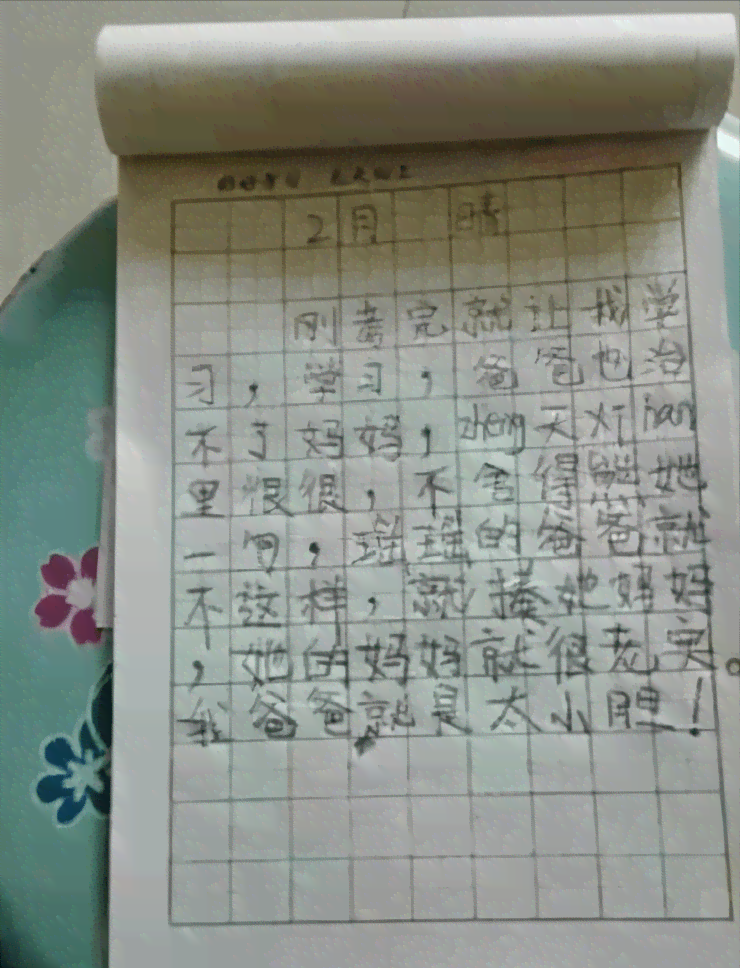 2月 晴
刚考完就让我学
习，学习，爸爸也治
不了妈妈，zheng天灯
里很很，不舍得她
一句，瑶瑶的爸爸就
不这样，就揍她妈妈
，她的妈妈就很老实。
我爸爸就是太小胆！